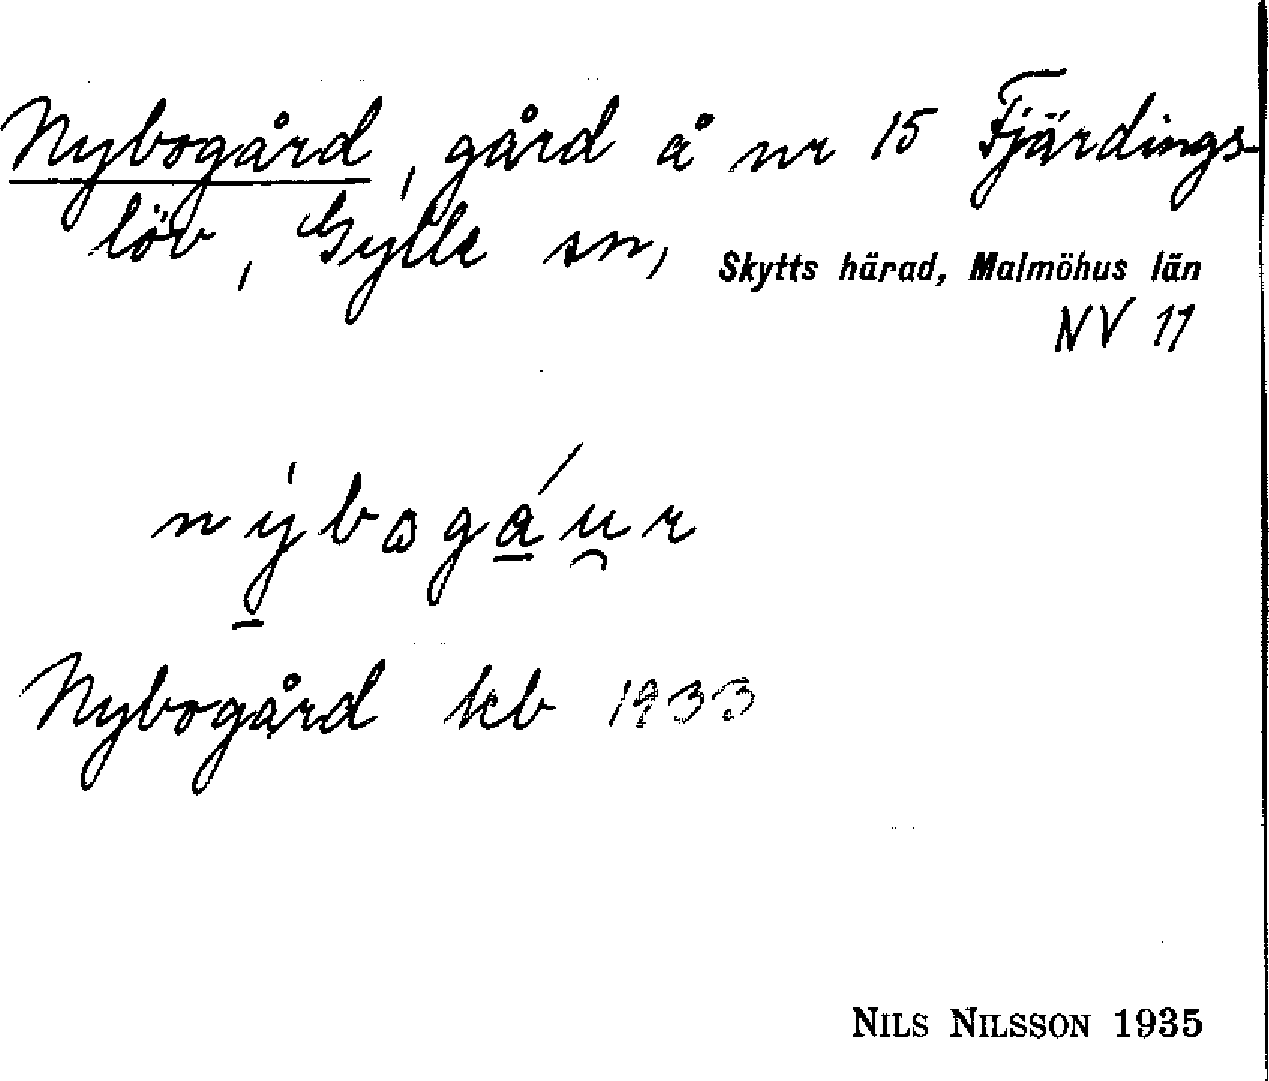 Nybogård, gård å nr 15 Fjärdings-
löv, Gylle sn, Skytts härad, Malmöhus län
NV 11
nýbɷgáu̯r
Nybogård kb 1933
NILS NILSSON 1935